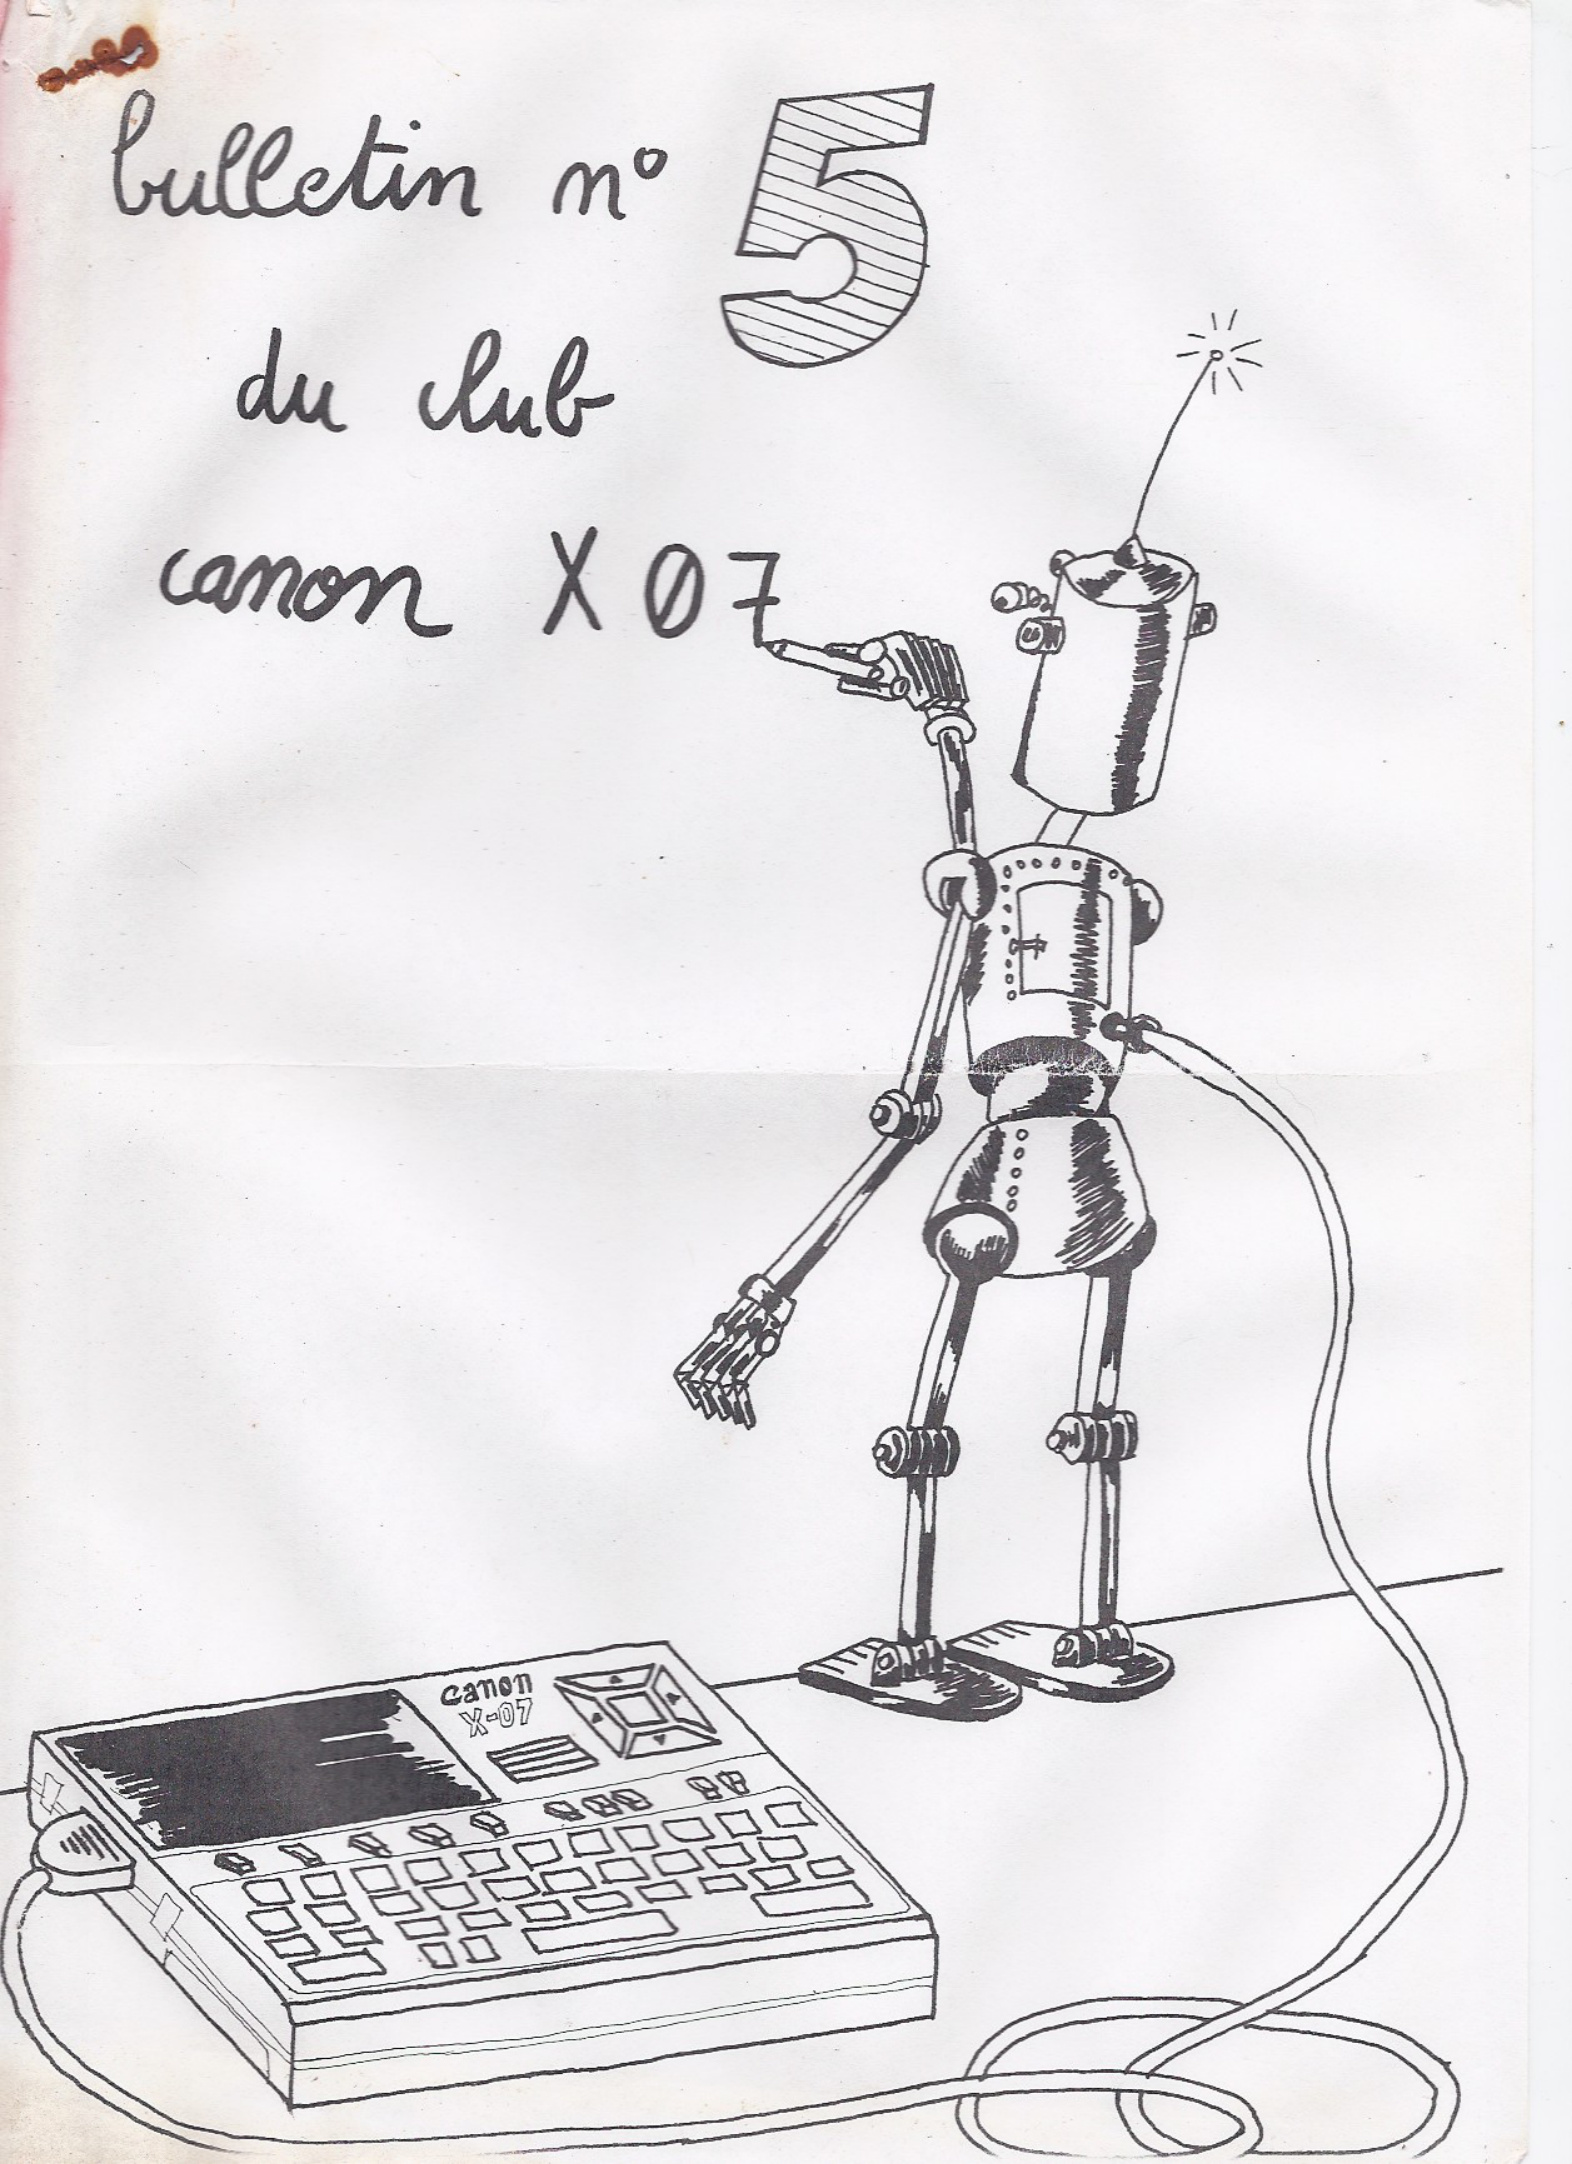 bulletin n° 5
du club
canon X07
canon
X-07